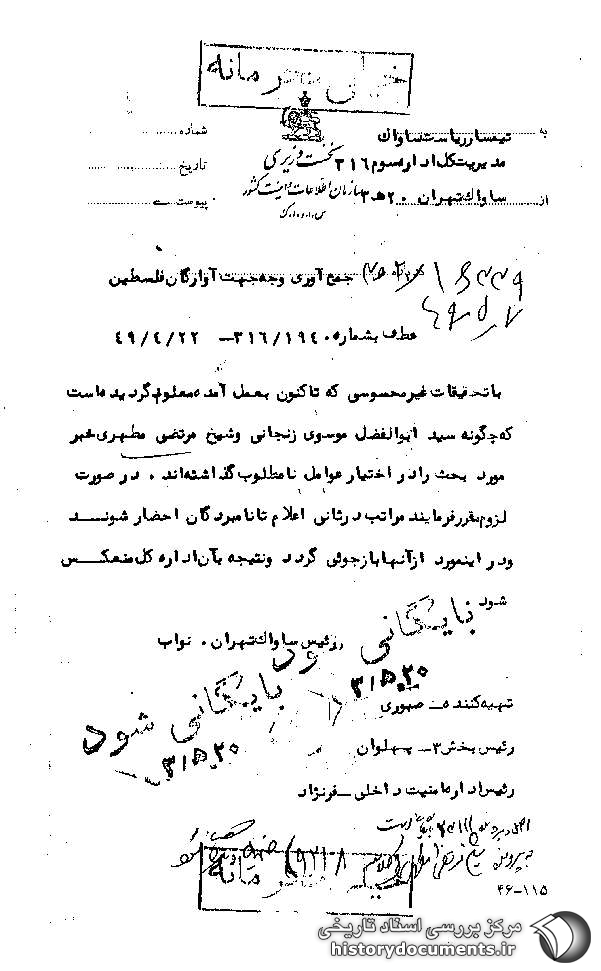 خیلی محرمانه
نخست وزیری
سازمان اطلاعات و امنیت کشور
س.ا.و.ا.ک
به تیمسار ریاست ساواک
مدیریت کل اداره سوم ۳۱۶
از ساواک تهران ۲۰ ﻫ ۳
شماره
تاریخ
پیوست
جمع آوری وجه جهت آوارگان فلسطین
عطف بشماره ۳۱۶/۱۹۴۰۵ – ۴۹/۴/۲۲
با تحقیقات غیر محسوسی که تاکنون بعمل آمده معلوم گردیده است
که چگونه سید ابوالفضل موسوی زنجانی و شیخ مرتضی مطهری خبر
مورد بحث را در اختیار عوامل نامطلوب گذاشته‌اند . در صورت
لزوم مقرر فرمایند مراتب در ثانی اعلام تا نامبردگان احضار شوند
و در اینمورد از آنها بازجوئی گردد و نتیجه بآن اداره کل منعکس
شود
رئیس ساواک تهران . نواب
بایگانی شود
۳/۵.۲۰
بایگانی شود
۳/۵.۲۰
تهیه کننده – صبوری
رئیس بخش ۳ – پهلوان
رئیس اداره امنیت داخلی – فرنژاد
۴۶-۱۱۵
مرکز بررسی اسناد تاریخی
historydocuments.ir